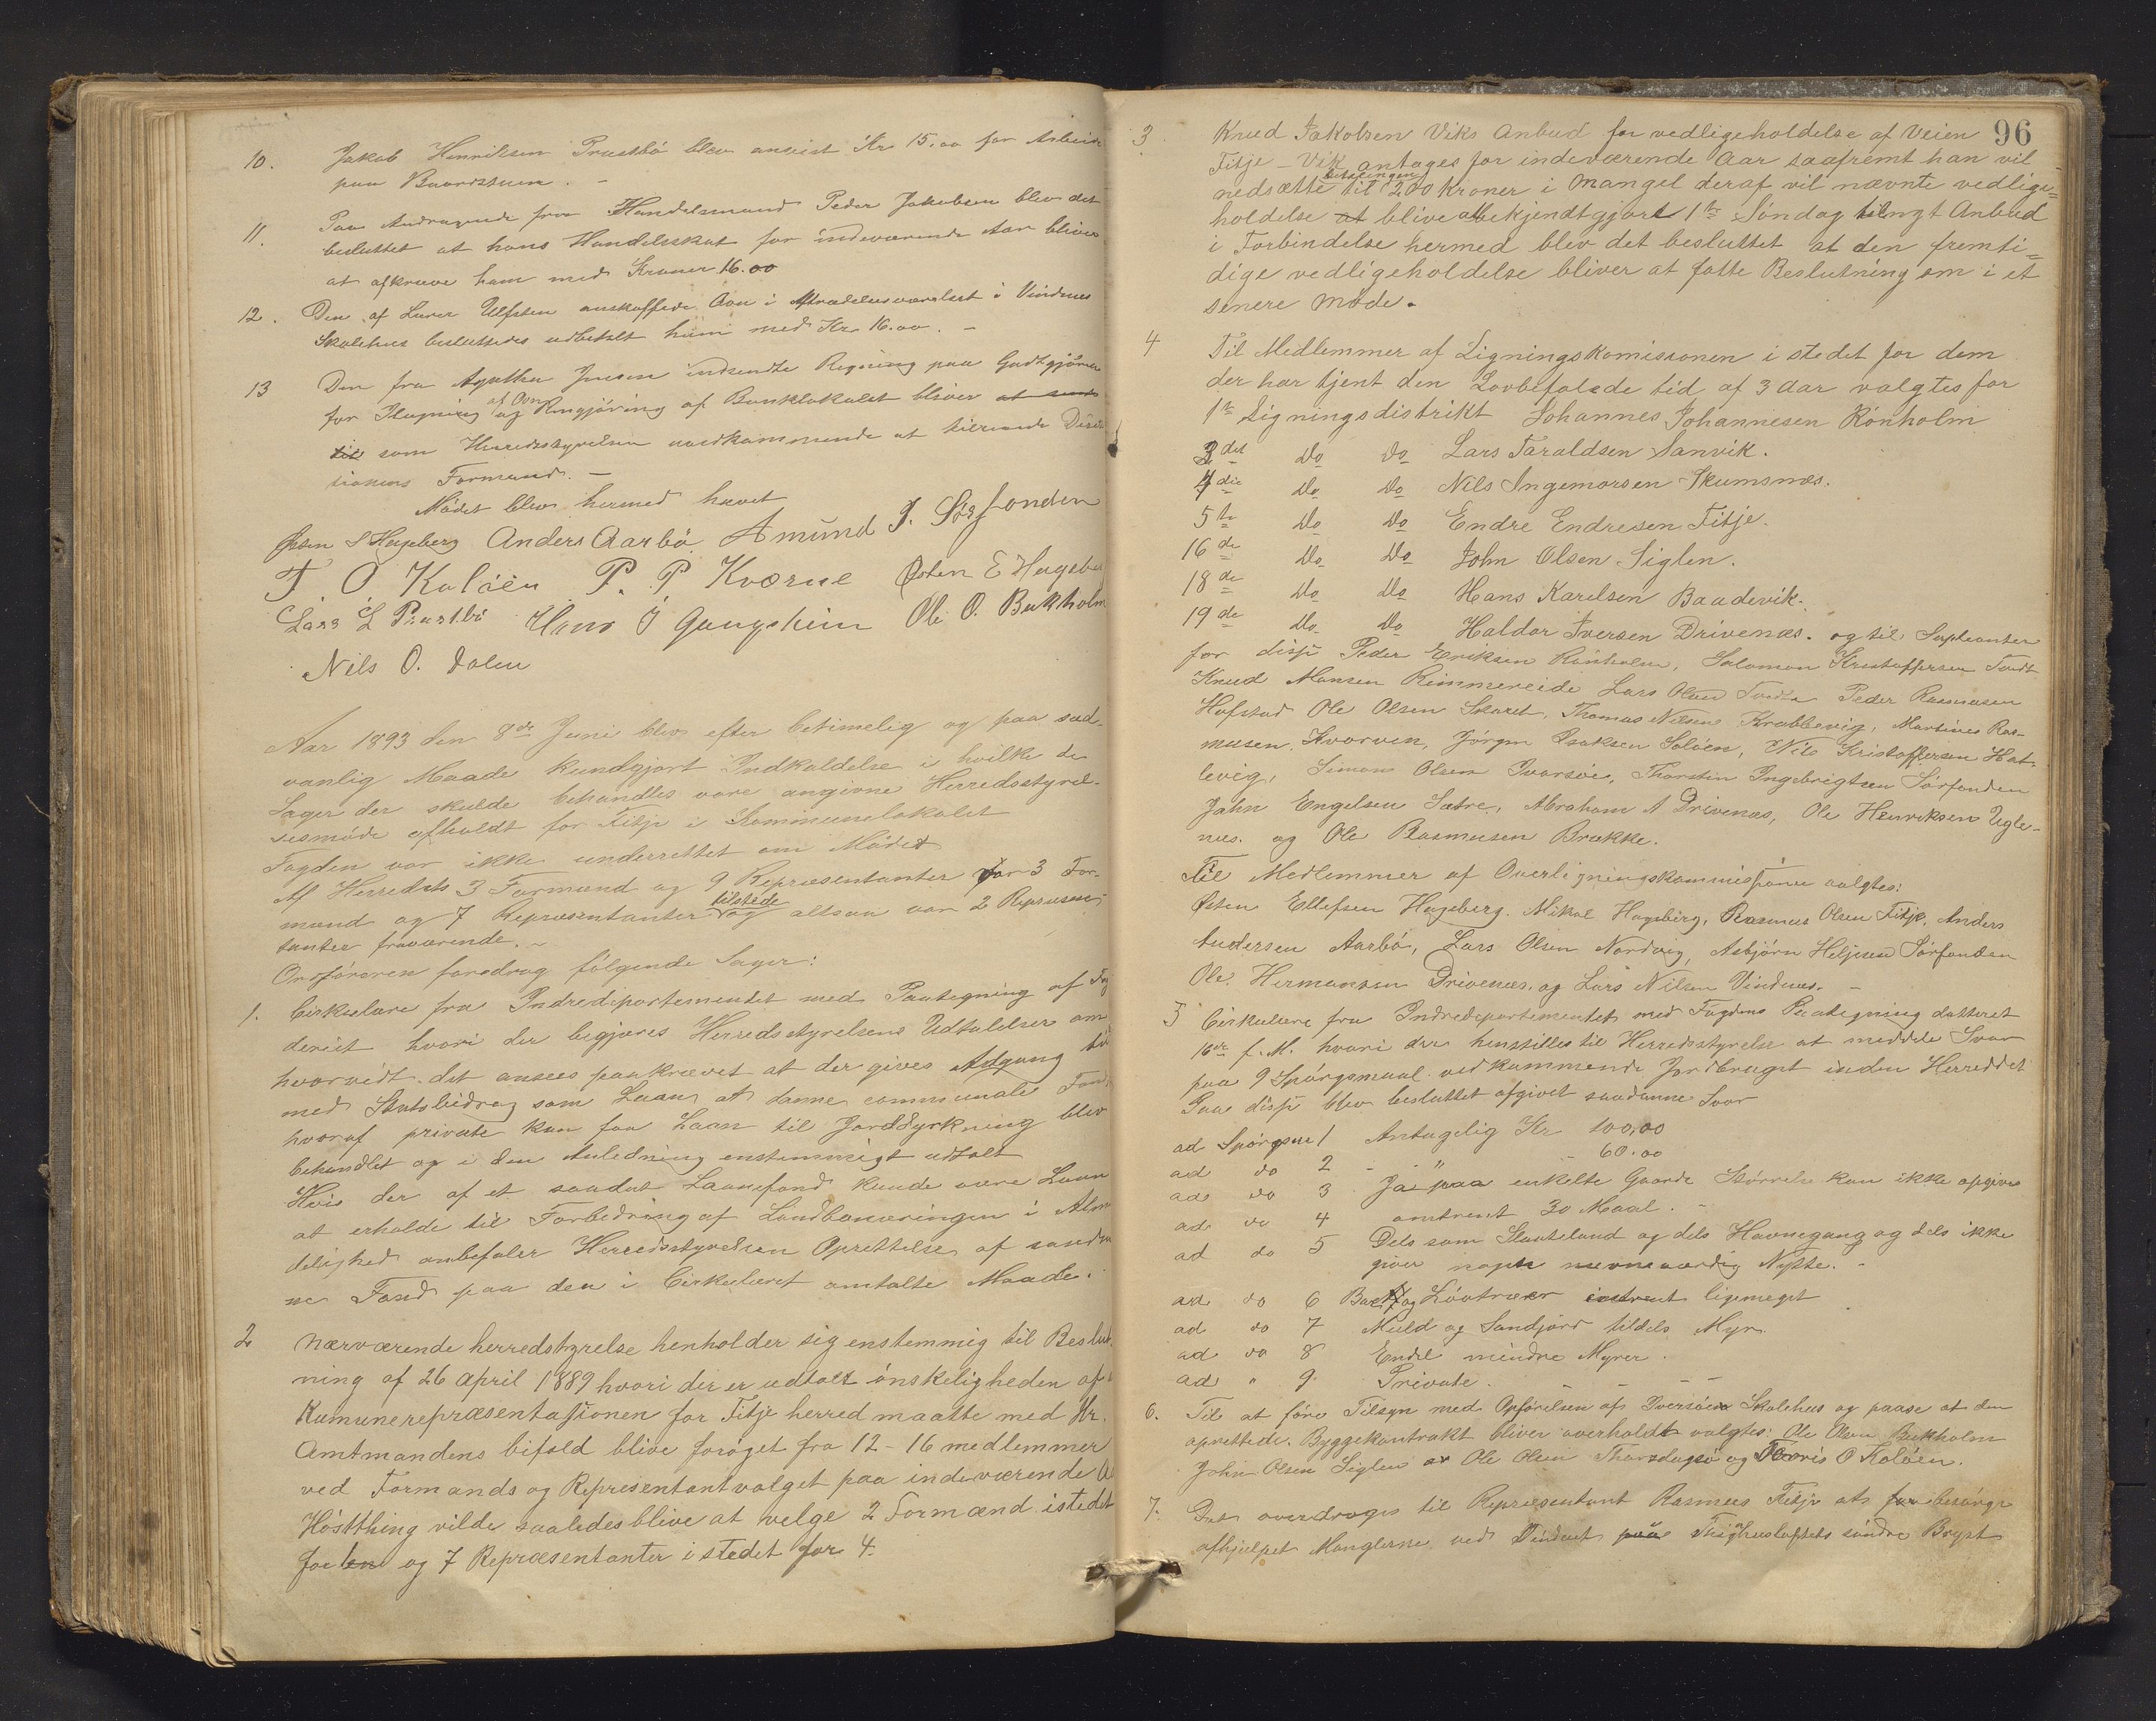 10. Jakob Henriksen Prestbö blev anvist Kr 15.00 for Arbeide
paa Baardstuen. –
11. Paa Andragende fra Handelsmand Peder Jakobsen blev det
besluttet at hans Handelsskat for indeværende Aar bliver
at afkræve ham med Kroner 16.00
12. Den af Lærer Ulfsten anskaffede Ovn i Aftrædelsesværelset i Vindnes
Skolehus besluttedes udbetalt ham med Kr 16.00. –
13 Den fra Agatha Jensen indsendte Regning paa Godtgjörelse
for Ilægning af Ovn og Rengjöring af Banklokalet bliver at sende
til som Herredsstyrelsen uvedkommende at tilsende Direk
tionens Formand. –
Mödet blev hermed hævet
Östen S Hageberg Anders Aarbö Amund J. Sörfonden
T. O. Kalöen P. P. Kværne Östen E Hageber
Lars L Prestbö Hans J Gaugstein Ole O. Bukholm
Nils O. Dalen
Aar 1893 den 8de Juni blev efter betimelig og paa sæd-
vanlig Maade kundgjort Indkaldelse i hvilke de
Sager der skulde behandles vare angivne Herredsstyrel-
sesmöde afholdt for Fitje i Kommunelokalet
Fogden var ikke underrettet om Mödet
Af Herredets 3 Formænd og 9 Repræsentanter var 3 For-
mænd og 7 Repræsentanter tilstede og altsaa var 2 Repræsen-
tanter fraværende. –
Ordföreren foredrog fölgende Sager:
1. Cirkulære fra Indredepartementet med Paategning af Fog
deriet hvori der begjæres Herredsstyrelsens Udtalelser om
hvorvidt det ansees paakrævet at der gives Adgang til
med Statsbidrag som Laan at danne communale Fond
hvoraf private kan faa Laan til Jorddyrkning blev
behandlet og i den Anledning enstemmigt udtalt
Hvis der af et saadat Laanefond kunde være Laan
at erholde til Forbedring af Landbonæringen i Alm
delighed anbefaler Herredsstyrelsen Oprettelse af saada
ne Fond paa den i Cirkulæret omtalte Maade.
2 Nærværende herredstyrelse henholder sig enstemmig til Beslut
ning af 26 April 1889 hvori der er udtalt önskeligheden af
Kumunerepræsentationen for Fitje herred maatte med Hr.
Amtmandens bifald blive foröget fra 12 – 16 medlemmer
ved Formands og Representantvalget paa indeværende
Höstthing vilde saaledes blive at velge 2 Formænd istedet
for en og 7 Repræsentanter i stedet for 4.
96
3 Knud Jakobsen Viks Anbud for vedligeholdelse af Veien
Fitje – Vik antages for indeværende Aar saafremt han vil
nedsætte betalingen til 200 kroner i Mangel deraf vil nævnte vedlige=
holdelse at blive at bekjendtgjort 1te Söndag til nyt Anbud
i Forbindelse hermed blev det besluttet at den fremti=
dige vedligeholdelse bliver at fatte Beslutning om i et
senere Möde.
4 Til Medlemmer af Ligningskomissionen i stedet for dem
der har tjent den Lovbefalede tid af 3 Aar valgtes for
1te Ligningsdistrikt Johannes Johannesen Rönholm
3det Do Do Lars Taraldsen Sanvik.
4die Do Do Nils Ingemorsen Skumsnæs.
5te Do Do Endre Endresen Fitje.
16de Do Do John Olsen Siglen.
18de Do Do Hans Karelsen Baadevik.
19de Do Do Haldor Iversen Drivenæs. og til Supleanter
for disse Peder Eriksen Rönholm, Salomon Kristoffersen Tvedt
Knud Monsen Rimmereide Lars Olsen Peder Rasmusen
Hofstad Ole Olsen Skaret, Thomas Nilsen Krabbevig, Martines Ras-
musen Kvorven, Jörgen Isaksen Solöen, Nils Kristoffersen Hat-
levig, Simon Olsen Ivarsöe, Thorstin Ingebrigtsen Sörfonden
John Engelsen Sætre, Abraham A Drivenæs, Ole Henriksen Ugle-
næs. og Ole Rasmusen Brække.
Til Medlemmer af Overligningskommissionen valgtes:
Östen Ellefsen Hageberg. Mikal Hageberg, Rasmus Olsen Fitje, Anders
Andersen Aarbö, Lars Olsen Nordvig, Asbjörn Heljesen Sörfonden
Ole Hermansen Drivenæs. og Lars Nilsen Vindnes. –
5 Cirkulære fra Indredepartementet med Fogdens Paategning datteret
16de f. M. hvori der henstilles til Herredsstyrelse at meddele Svar
paa 9 Spörgsmaal vedkommende Jordbruget inden Herreddet
Paa disse blev besluttet afgivet saadanne Svar
ad Spörgsm 1 Antagelig Kr 100,00
ad do 2 – " – 60.00
ad do 3 Ja paa enkelte Gaarde Störrelse kan ikke opgives
ad do 4 omtrent 30 Maal. –
ad do 5 Dels som Slaateland og dels Havnegang og dels ikke
giver nogen nævneværdig Nytte. –
ad do 6 Bar og Lövtræer omtrent ligemeget
ad do 7 Muld og Sandjord tildels Myr
ad do 8 Endel mindre Myrer.
ad " 9 Private. – – – –
6. Til at före Tilsyn med Opförelsen af Iversöens Skolehus og paase at den
oprettede Byggekontrakt bliver overholdt valgtes: Ole Olsen Bukholm
John Olsen Siglen Ole Olsen og O Kalöen.
7. Det overdroges til Repræsentant Rasmus Fitje at besörge
afhjelpet Manglerne ved Vinduet paa Thinghusloftets söndre Bryst